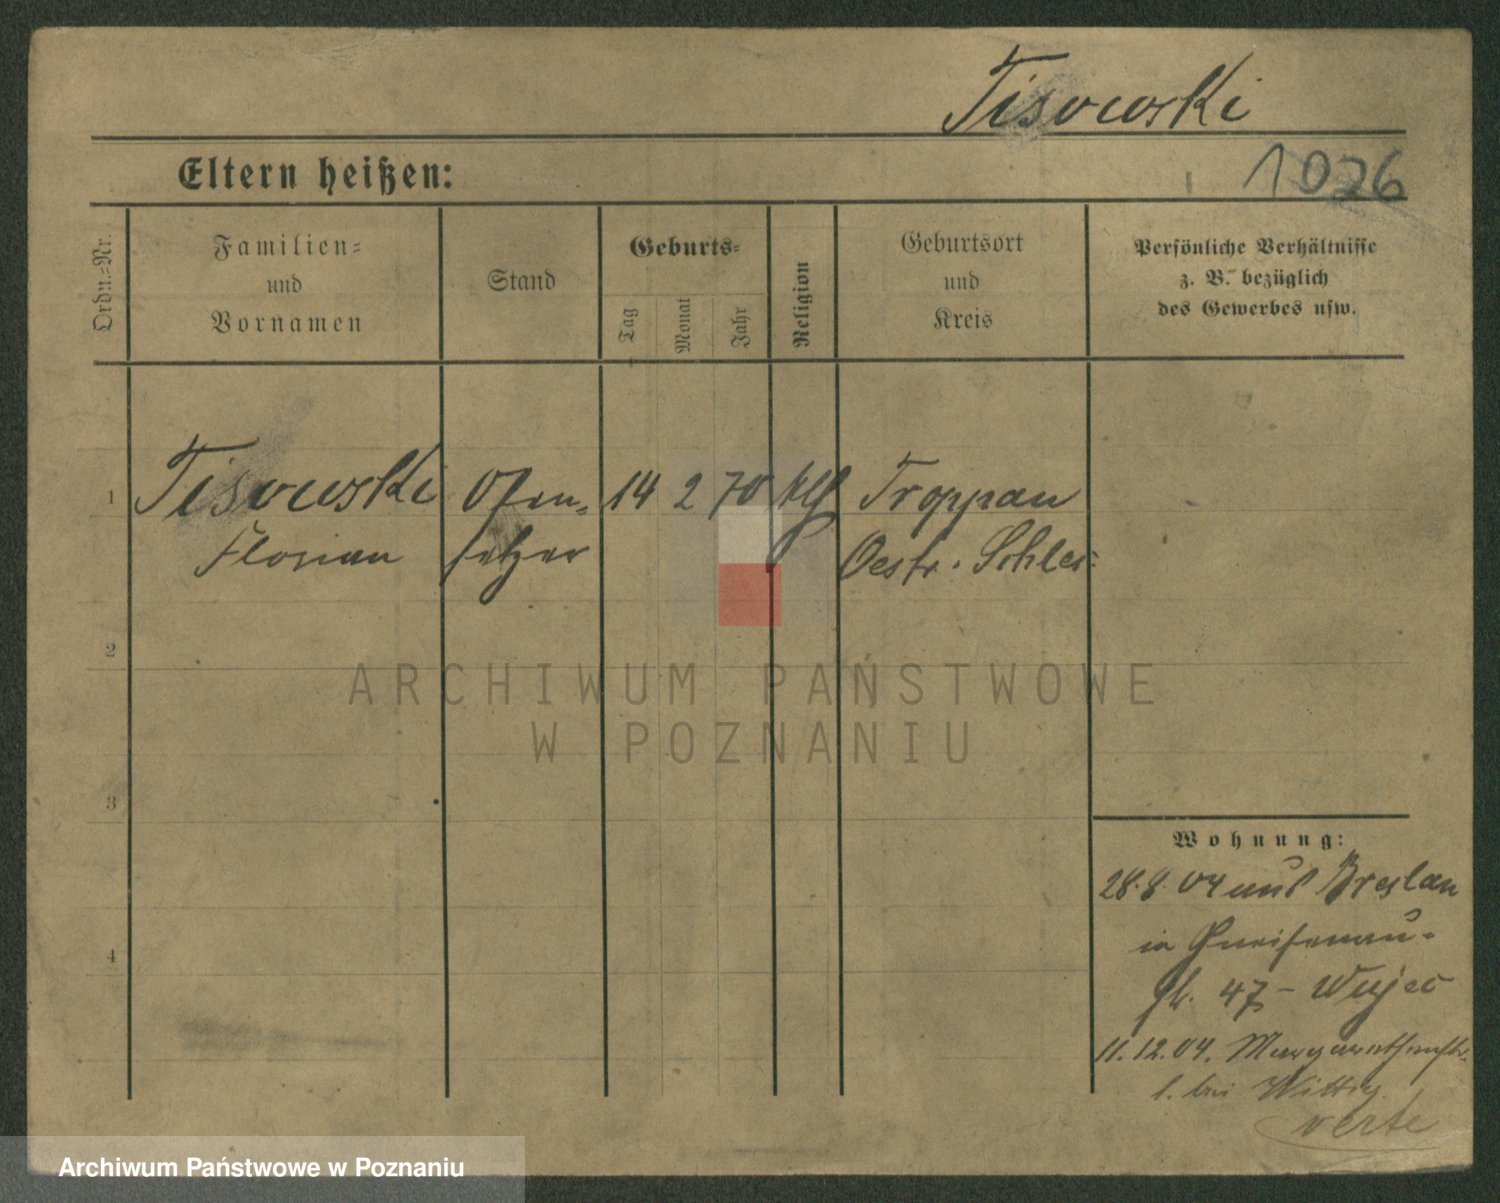 Tisowski
Eltern heißen:
1026
Ordn.-Nr.
Familien-
und
Vornamen
Stand
Geburts-
Tag
Monat
Jahr
Religion
Geburtsort
und
Kreis
Persönliche Verhältnisse
z. B. bezüglich
des Gewerbes usw.
1 Tisowski Ofen- 14 2 70 kth Troppau
Florian setzer Oestr. Schles:
2
3
4
Wohnung:
28.8.04 aus Breslau
in Gneisenau-
str. 47 - Wujec
11.12.04. Margarethenstr.
1. bei Wittig
verte
ARCHIWUM PAŃSTWOWE
W POZNANIU
Archiwum Państwowe w Poznaniu